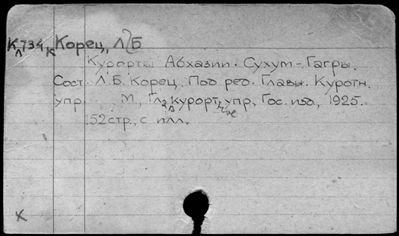 К734к Корец, Л.Б
Курорты Абхазии. Сухум - Гагры.
Сост. Л.Б. Корец. Под ред. Главн. Курортн.
упр. М., Гл. курорт. упр., Гос. изд., 1925.
52 стр., с илл.
К